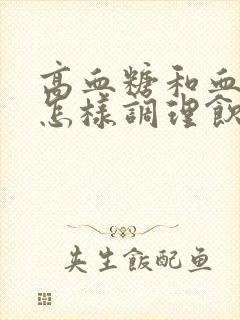 高血糖和血
怎樣調理飲
夹生飯配鱼